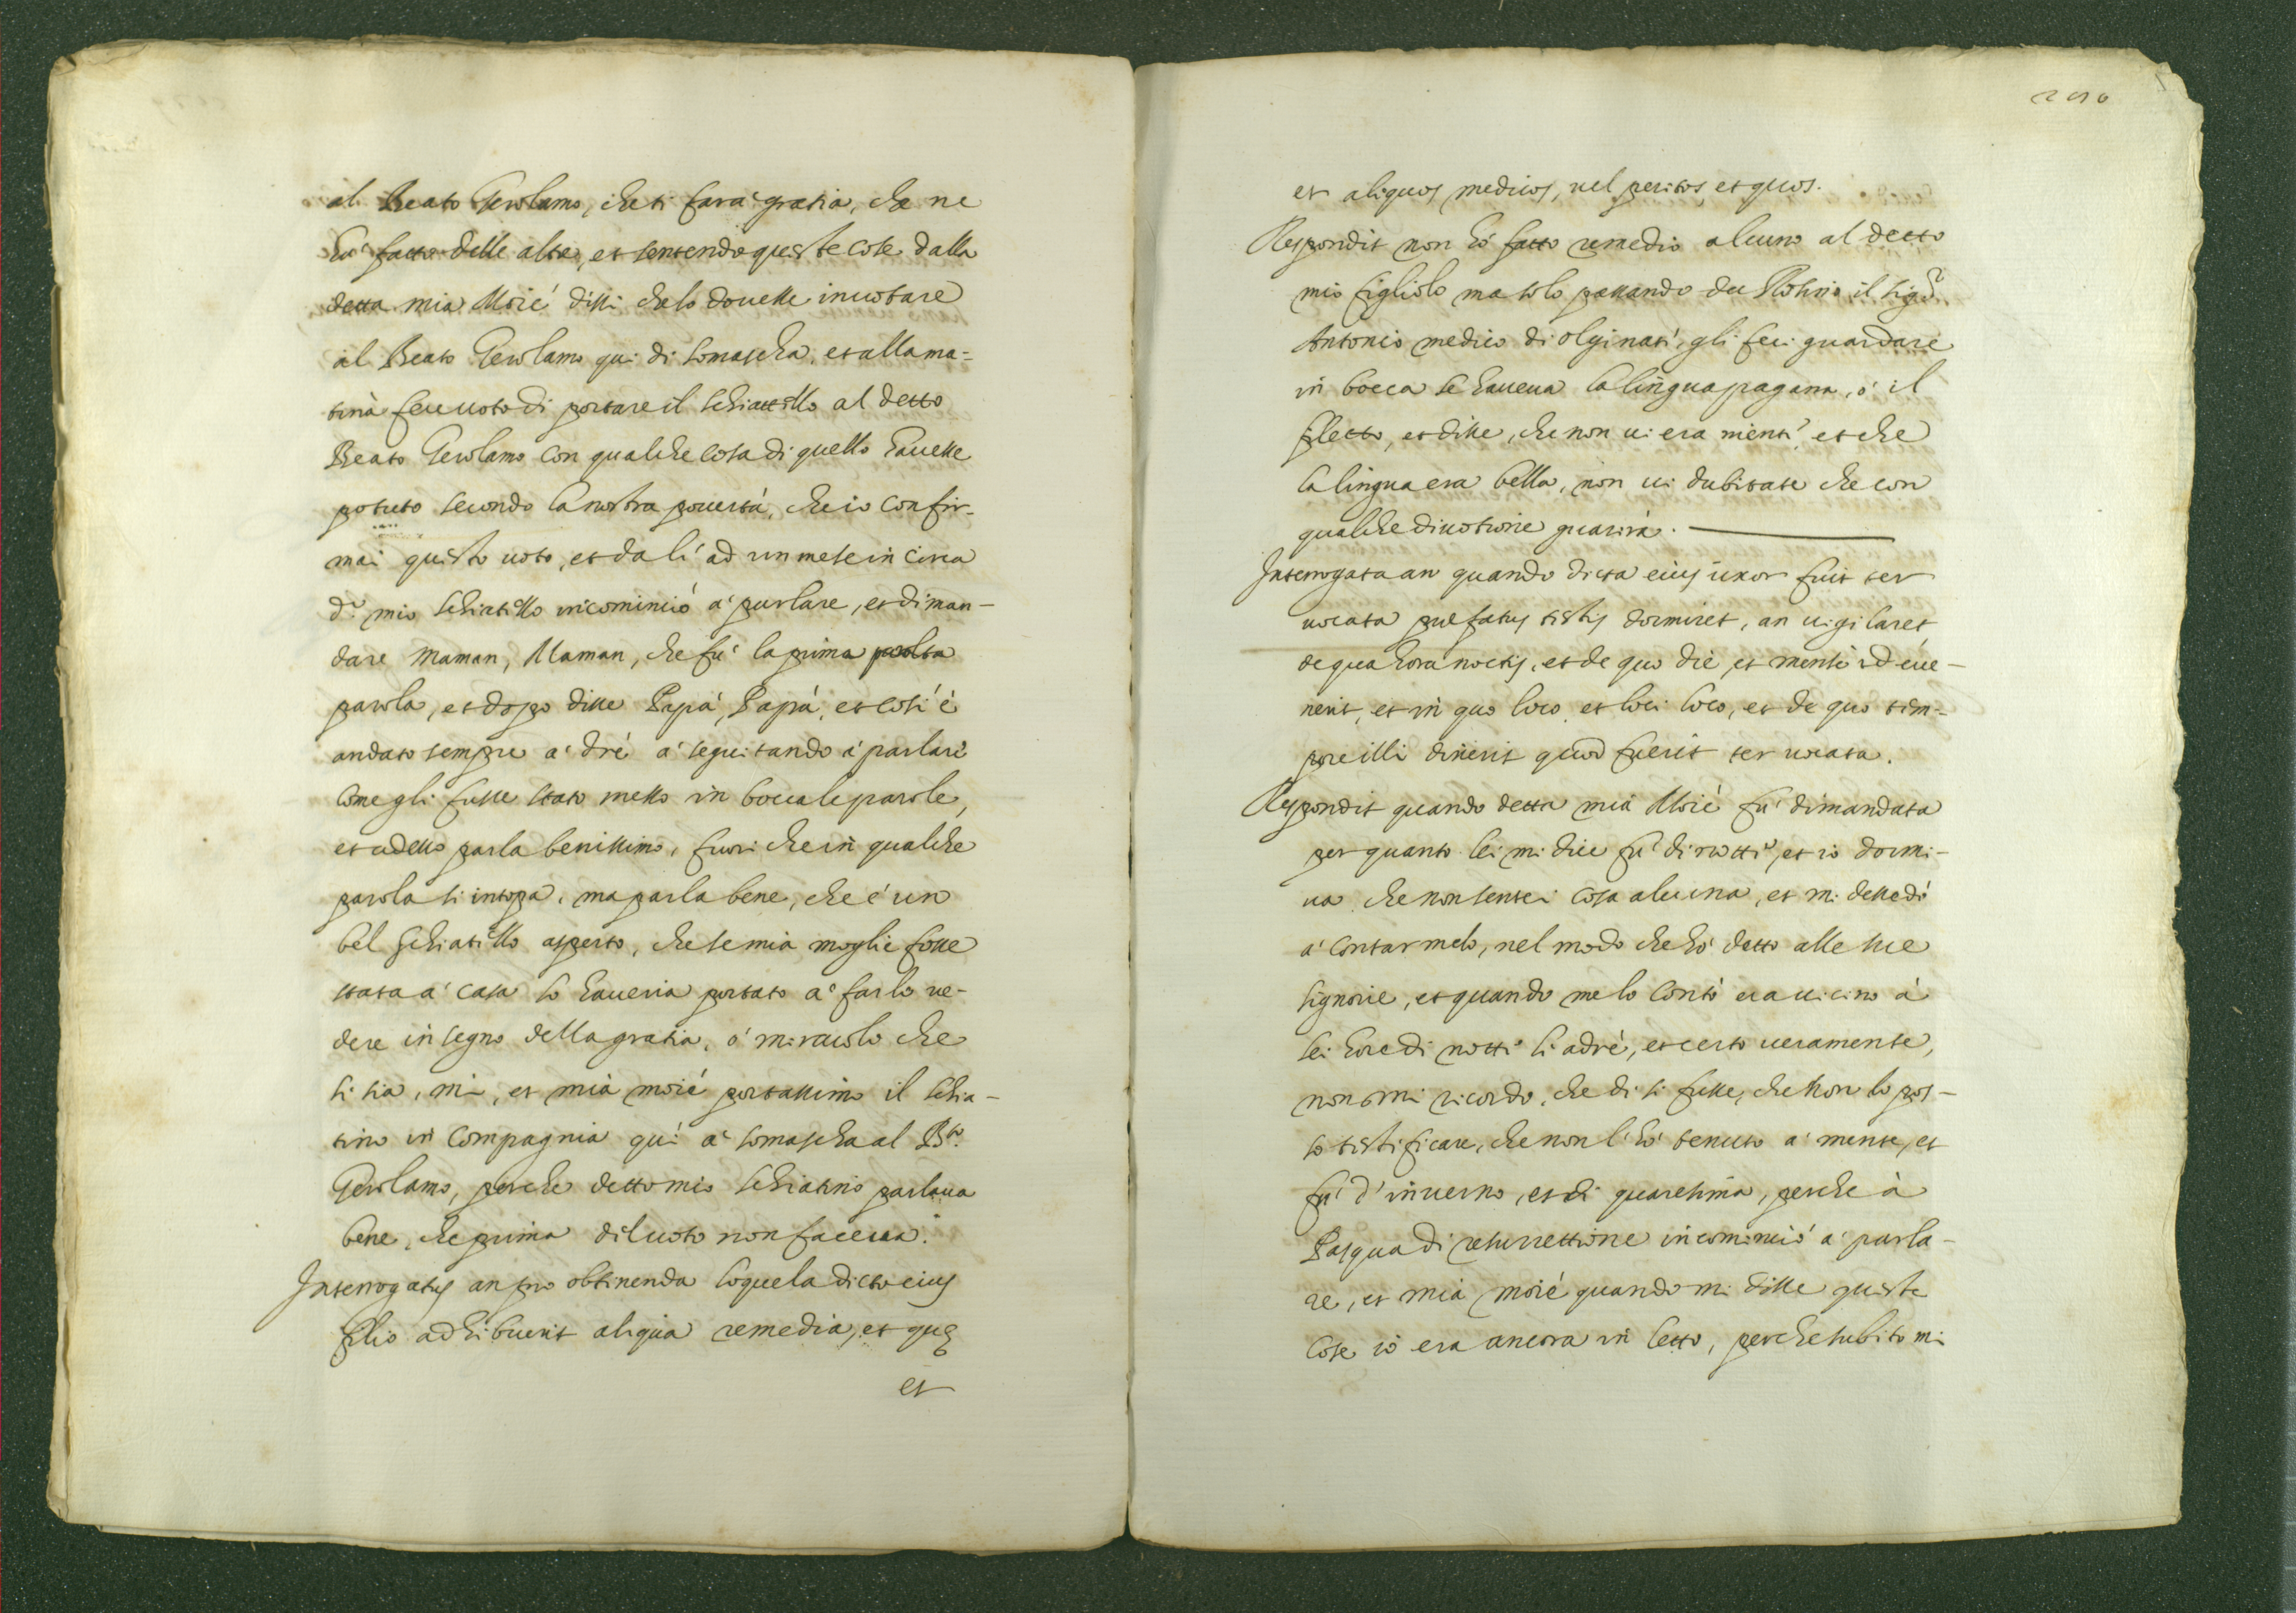 al Beato Gerolamo, che ti farà gratia, che ne
hà fatto delle altre, et sentendo queste cose dalla
detta mia Moié dissi che lo douesse inuotare
al Beato Gerolamo quì di Somascha, et alla ma=
tina fece uoto di portare il schiattello al detto
Beato Gerolamo con qualche cosa di quello hauesse
potuto secondo la nostra pouertà, che io confir-
mai questo uoto, et da lì ad un mese in circa
d.º mio schiatello incominciò à parlare, et diman-
dare Maman, Maman, che fù la prima
parola, et dopo disse Papà, Papà, et così è
andato sempre a' dré a' seguitando a' parlare
come gli fusse stato messo in bocca le parole,
et adesso parla benissimo, fuori che in qualche
parola si intopa, ma parla bene, che é un
bel schiatello asperto, che se mia moglie fosse
stata a' casa lo haueria portato a' farlo ue-
dere in segno della gratia, o' miracolo che
si sia, mi, et mia moié portassimo il schia-
tino in compagnia quì a' Somascha al B.to
Gerolamo, perche detto mio schiatino parlaua
bene, che prima del uoto non faceua.
Interrogatus an pro obtinenda loquela dicto eius
filio adhibuerit aliqua remedia, et quę
et
et aliquos medicos, uel peritos, et quos.
Respondit non hò fatto remedio alcuno al detto
mio figliolo ma solo passando da il sig.r
Antonio medico di Olginati, gli feci guardare
in bocca se haueua la lingua pagana, ò il
filetto, et disse, che non ui era nienti, et che
la lingua era bella, non ui dubitate che con
qualche diuotione guarirà.
Interrogata an quando dicta eius uxor fuit ter
uocata prefatus testis dormiret, an uigilaret,
de qua hora noctis, et de quo die, et mense id eue-
nerit, et in quo loco, et loci loco, et de quo tem-
pore illi dixerit quod fuerit ter uocata.
Respondit quando detta mia Moié fù dimandata
per quanto lei mi dice fù di notte, et io dormi-
ua che non sentei cosa alcuna, et mi dessedò
a' contarmelo, nel modo che hò detto alle sue
signorie, et quando me lo contò era uicino à
sei hore di notti lì adré, et certo ueramente,
non mi ricordo, che dì si fusse, che non lo pos-
so testificare, che non l'hò tenuto a' mente, et
fù d'inuerno, et di quaresima, perche à
Pasqua di resurrettione incominciò a' parla-
re, et mia moié quando mi disse queste
cose io era ancora in letto, perche subito mi